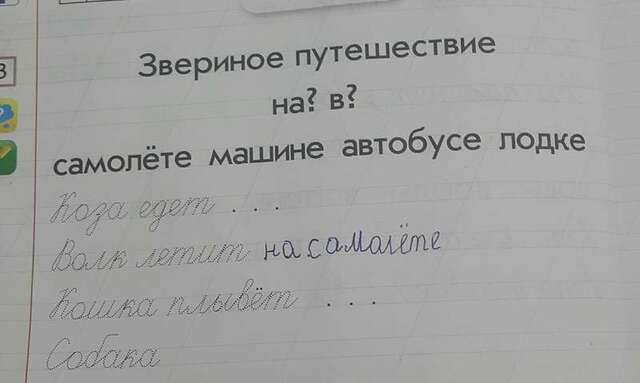 3
Звериное путешествие
на? в?
самолёте машине автобусе лодке
Коза едет . . .
Волк летит на самалёте
Кошка плывёт . . .
Собака